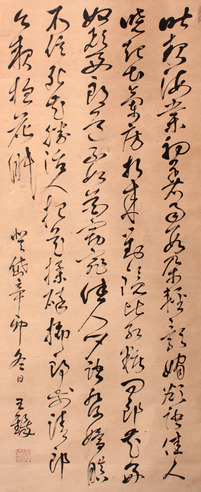 昨夜海棠初着雨數朵輕盈嬌欲語佳人
曉起出蘭房折來對鏡比紅粧問郎花好
奴顏好郎道不如花窈窕佳人聞語發嬌嗔
不信死花勝活人把花揉碎擲郎前請郎
今夜抱花眠
歲辛卯冬日王